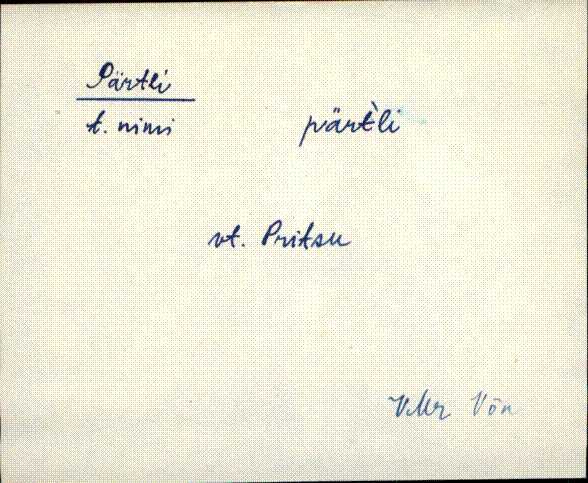 Pärtli
t. nimi
pärt̀li
vt. Pritsu
Võn